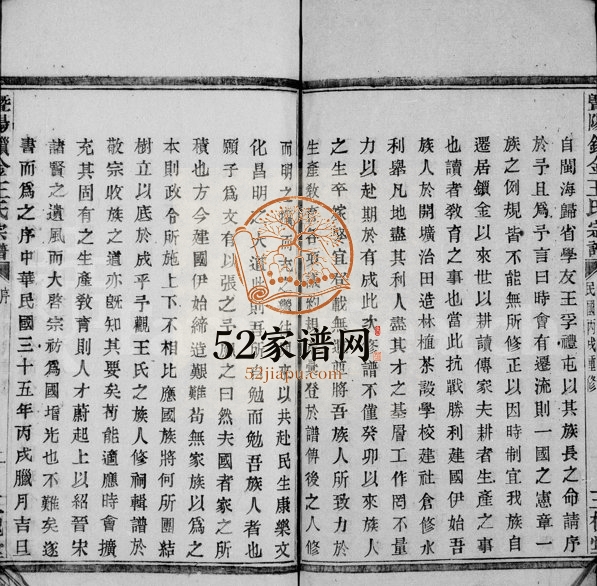 暨陽鎖金王氏宗譜
民國丙戌重修
自閩海歸省學友王孚禮屯以其族長之命請序
於予且爲予言曰時會有遷流則一國之憲章一
族之例規皆不能無所修正以因時制宜我族自
遷居鎖金以來世以耕讀傳家夫耕者生產之事
也讀者敎育之事也當此抗戰勝利建國伊始吾
族人於開壙治田造林植茶設學校建社倉修水
利舉凡地盡其利人盡其才之基層工作罔不量
力以赴期於有成此次修譜不僅癸卯以來族人
之生卒家
將吾族人所致力於
生產敎育
登於譜俾後之人修
而明之
以共赴民生康樂文
化昌明之大道此則吾
勉而勉吾族人者也
願子爲文有以張之予
之曰然夫國者家之所
積也方今建國伊始締造艱難苟無家族以爲之
本則政令所施上下不相比應國族將何所團結
樹立以底於成乎予觀王氏之族人修祠輯譜於
敬宗收族之道亦旣知其要矣苟能適應時會擴
充其固有之生產敎育則人才蔚起上以紹晉宋
諸賢之遺風而大啓宗祊爲國增光也不難矣遂
書而爲之序中華民國三十五年丙戌臘月吉旦
暨陽鎖金王氏宗譜
序
52家谱网
52jiapu.com